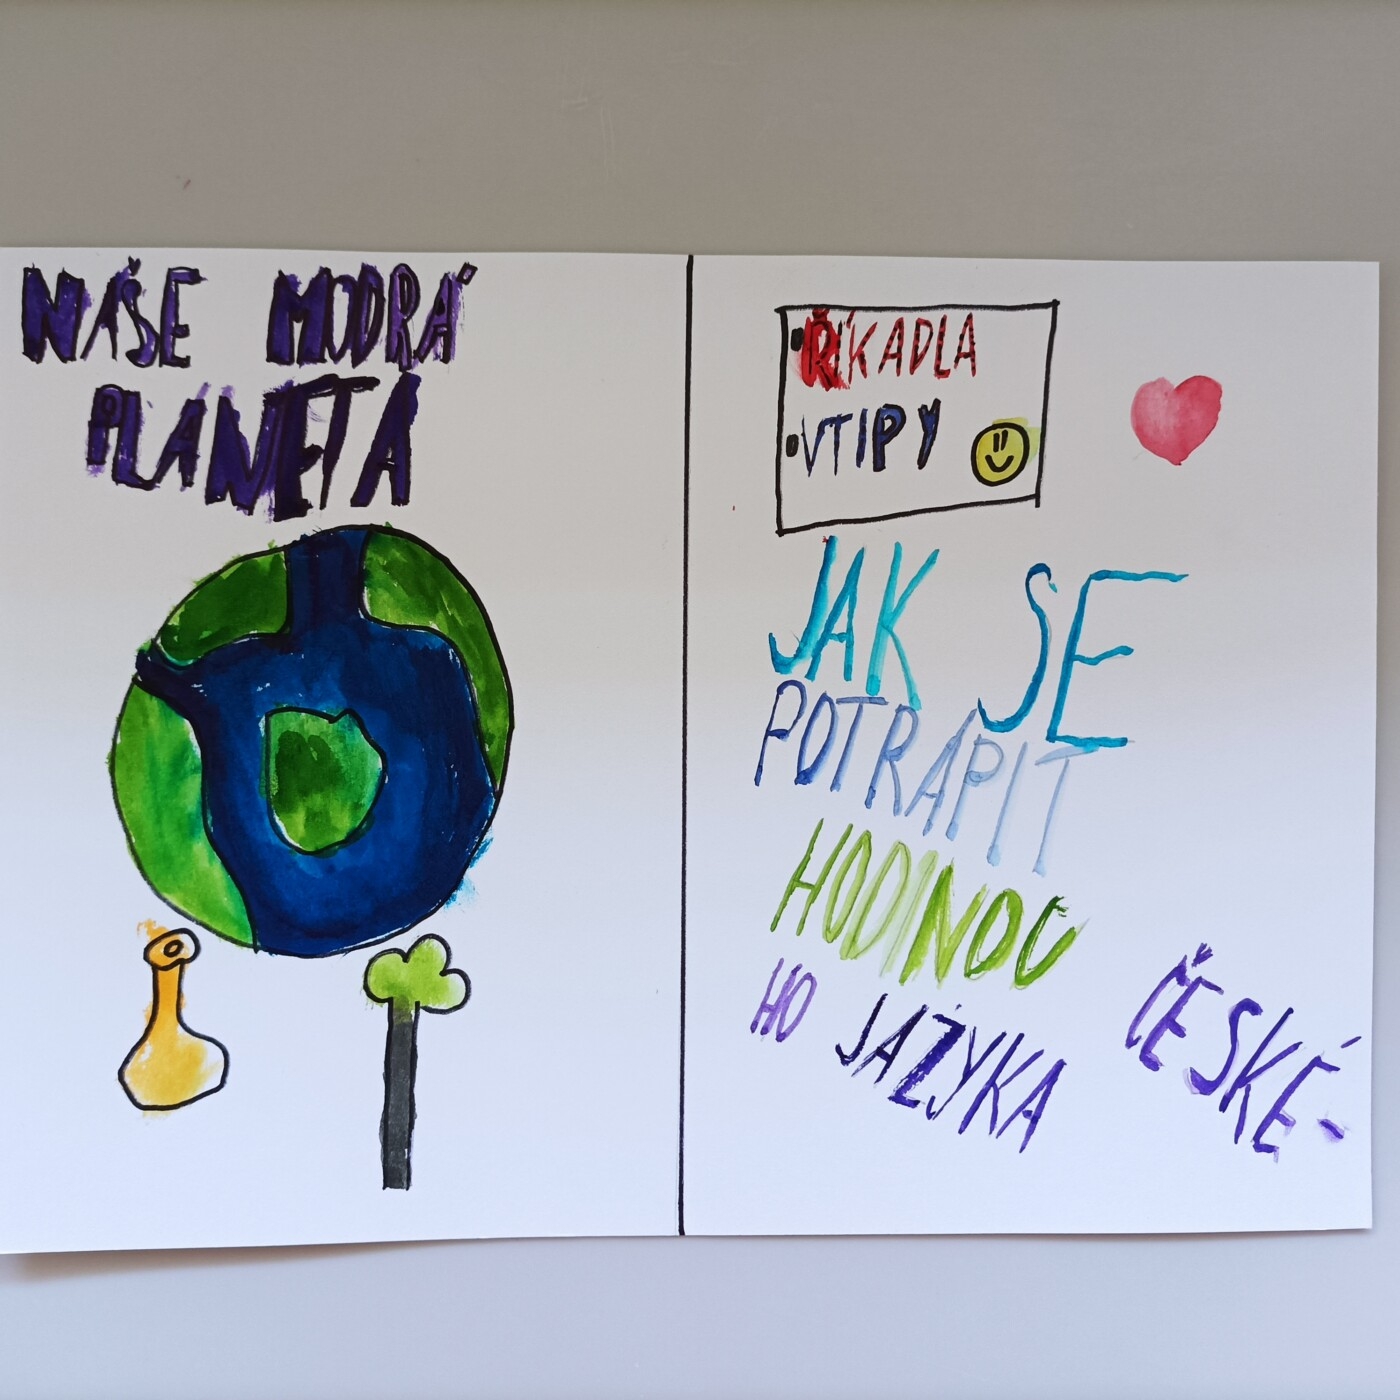 NAŠE MODRÁ
PLANETA
ŘÍKADLA
VTIPY
JAK SE
POTRÁPIT
HODINOU
ČESKÉ-
HO JAZYKA